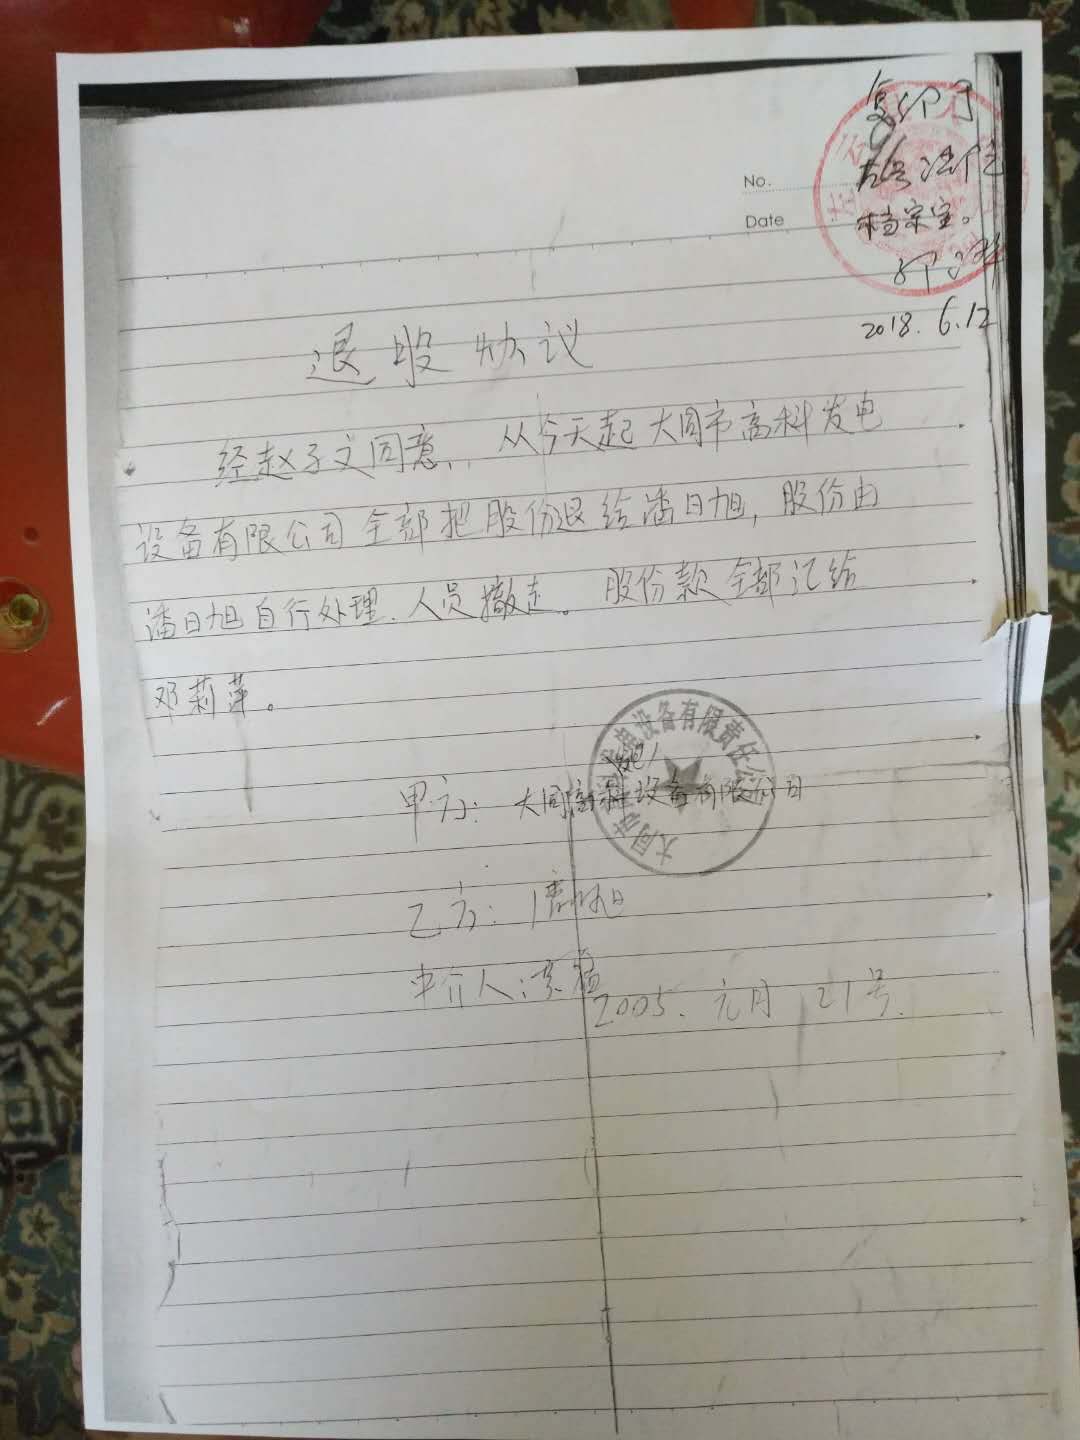 复印于
法院
档案室。
No.
Date
2018.6.12
退股协议
经赵子文同意、从今天起大同市高科发电
设备有限公司全部把股份退给潘日旭,股份由
潘日旭自行处理.人员撤走。股份款全部汇给
邓莉萍。
设备有限责任公
大同市
甲方: 大同高科设备有限公司
乙方: 潘旭日
中介人:
2005.元月 21号.